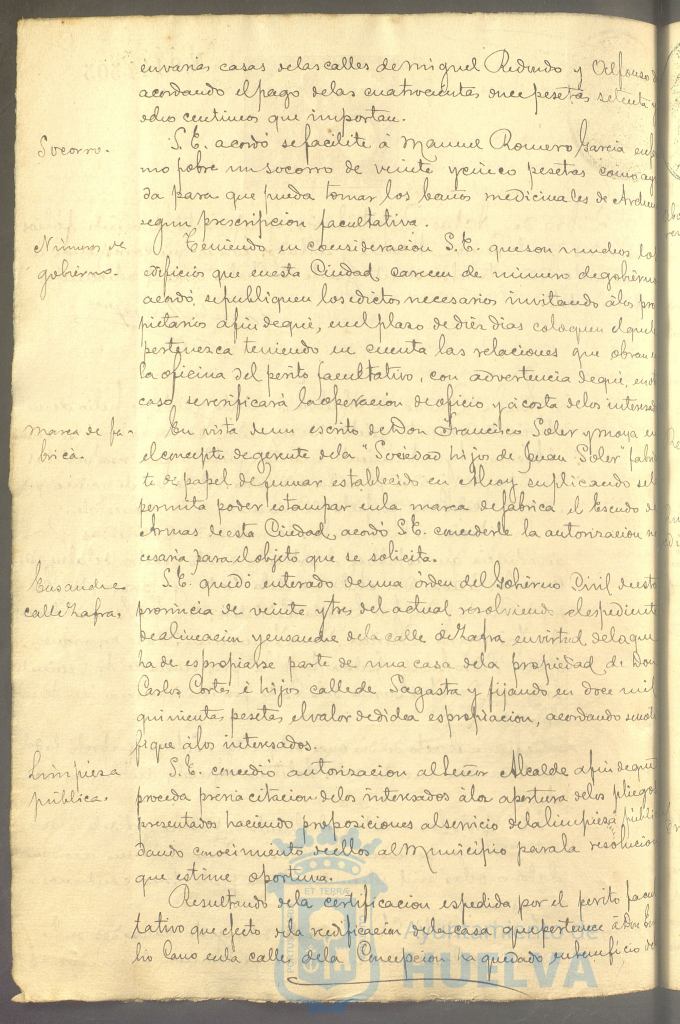 en varias casas de las calles de Miguel Redondo y Alfonso
acordando el pago de las cuatrocientas once pesetas setenta y
ocho centimos que importan.
Socorro.
S.E. acordó se facilite á Manuel Romero Garcia enfer
mo pobre un socorro de veinte y cinco pesetas como ayu
da para que pueda tomar los baños medicinales de
segun prescripcion facultativa.
Números de
gobierno.
Teniendo en consideracion S.E. que son muchos los
edificios que en esta Ciudad carecen de número de gobierno
acordó, se publiquen los edictos necesarios invitando á los pro
pietarios a fin de que, en el plazo de diez dias coloquen el que le
pertenezca teniendo en cuenta las relaciones que obran en
la oficina del perito facultativo, con advertencia de que, en otro
caso, se verificará la operacion de oficio y á costa de los interesad
Marca de fa-
brica.
En vista de un escrito de Don Francisco Soler y Moya en
el concepto de gerente de la "Sociedad hijos de Juan Soler" fabri
te de papel de fumar establecido en Alcoy suplicando se le
permita poder estampar en la marca de fábrica el Escudo de
Armas de esta Ciudad, acordó S.E. concederle la autorizacion ne
cesaria para el objeto que se solicita.
Ensanche
calle Zafra.
S.E. quedó enterado de una órden del Gobierno Civil de esta
provincia de veinte y tres del actual resolviendo el espediente
de alineacion y ensanche de la calle de Zafra en virtud de la que
ha de espropiarse parte de una casa de la propiedad de Don
Carlos Cortés é hijos calle de Sagasta y fijando en doce mil
quinientas pesetas el valor de dicha espropiacion, acordando se noti
fique á los interesados.
Limpieza
pública.
S.E. concedió autorizacion al Señor Alcalde a fin de que
proceda prévia citacion de los interesados á la apertura de los pliegos
presentados haciendo proposiciones al servicio de la limpieza públi
dando conocimiento de ellos al Municipio para la resolucion
que estime oportuna.
Resultando de la certificacion espedida por el perito facul
tativo que efecto de la reedificacion de la casa que pertenece á Don
lio Cano en la calle de la Concepcion ha quedado en beneficio de
ET TERRÆ
Ayuntamiento de
HUELVA